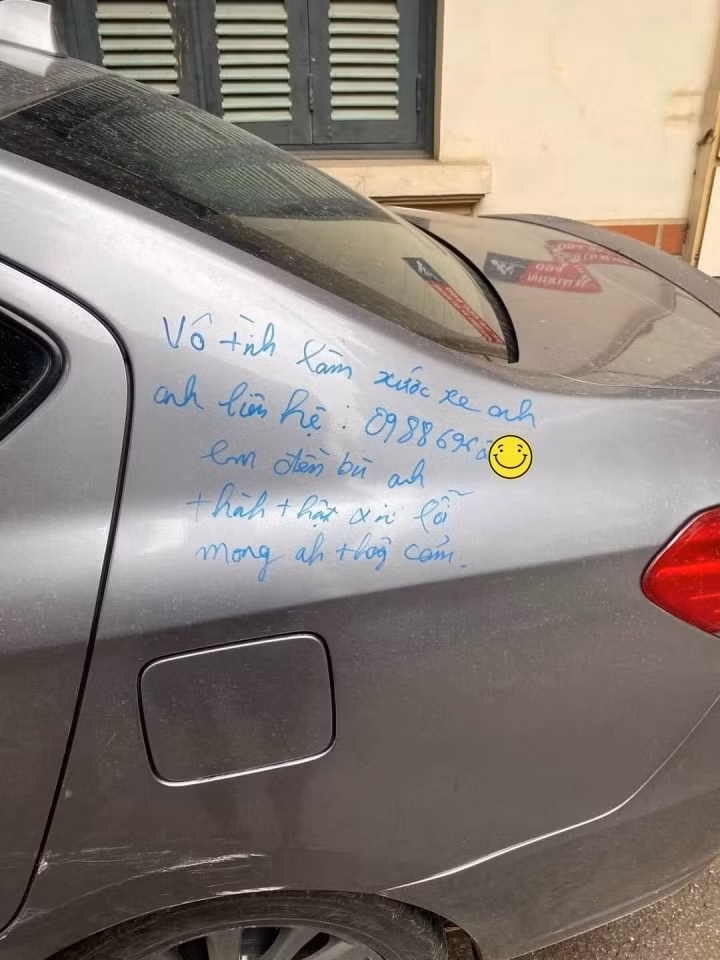 Vô tình làm xước xe anh
anh liên hệ: 098869
em đền bù anh
thành thật xin lỗi
mong ah thông cảm.